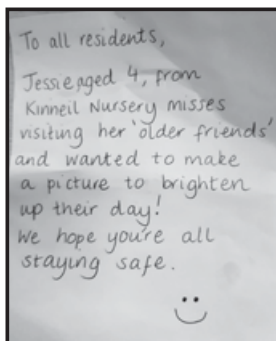 To all residents,
Jessie aged 4, from
Kinneil Nursery misses
visiting her 'older friends'
and wanted to make
a picture to brighten
up their day!
We hope you're all
staying safe.